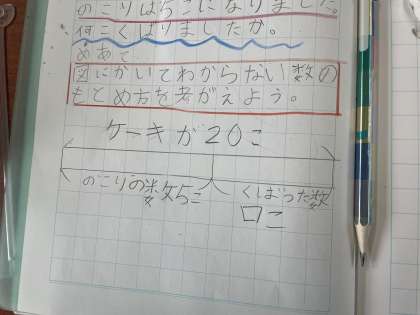 のこりは5こになりました。
何こくばりましたか。
めあて
図にかいてわからない数の
もとめ方を考がえよう。
ケーキが20こ
のこりの数5こ
くばった数
□こ